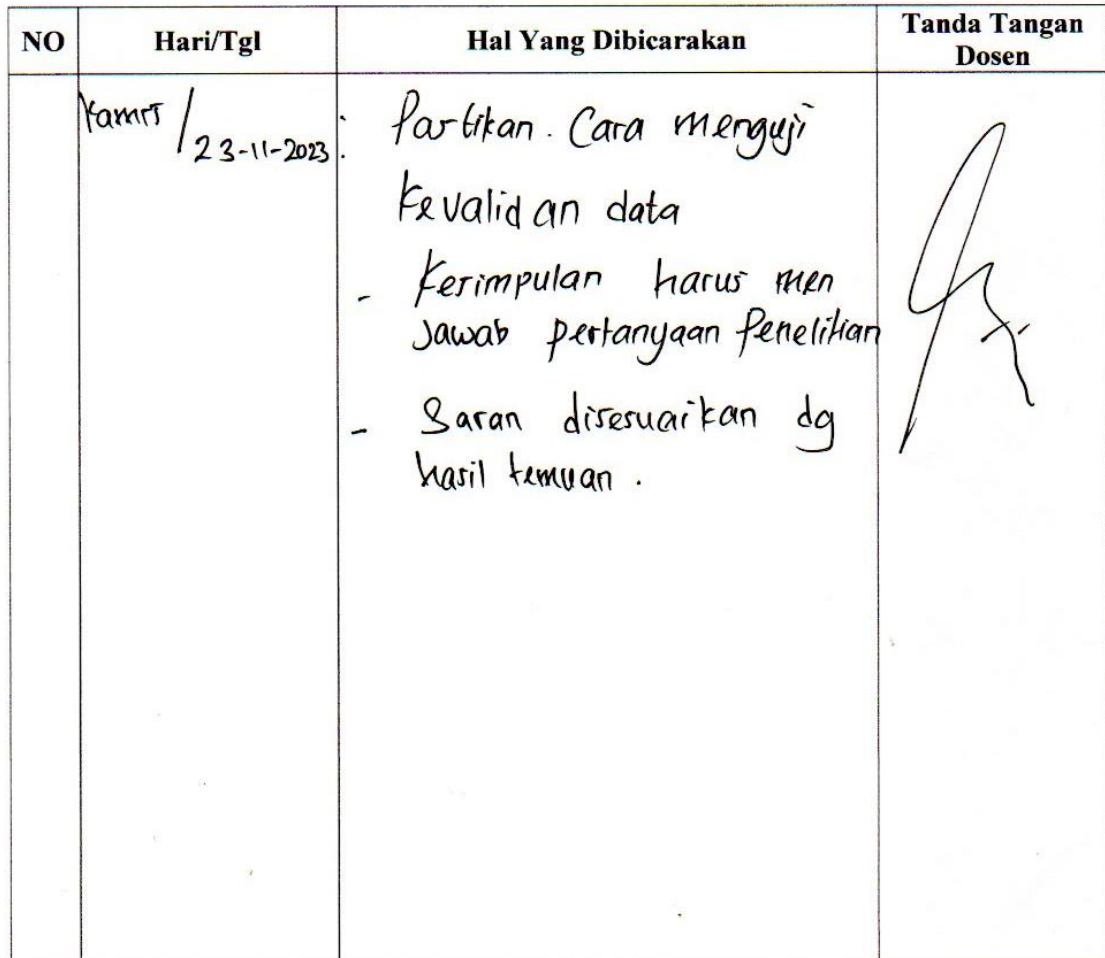 NO Hari/Tgl Hal Yang Dibicarakan Tanda Tangan
Dosen
Kamis / 23-11-2023 : Pastikan. Cara menguji
Kevalidan data
- Kesimpulan harus men
jawab pertanyaan Penelitian
- Saran disesuaikan dg
hasil temuan .